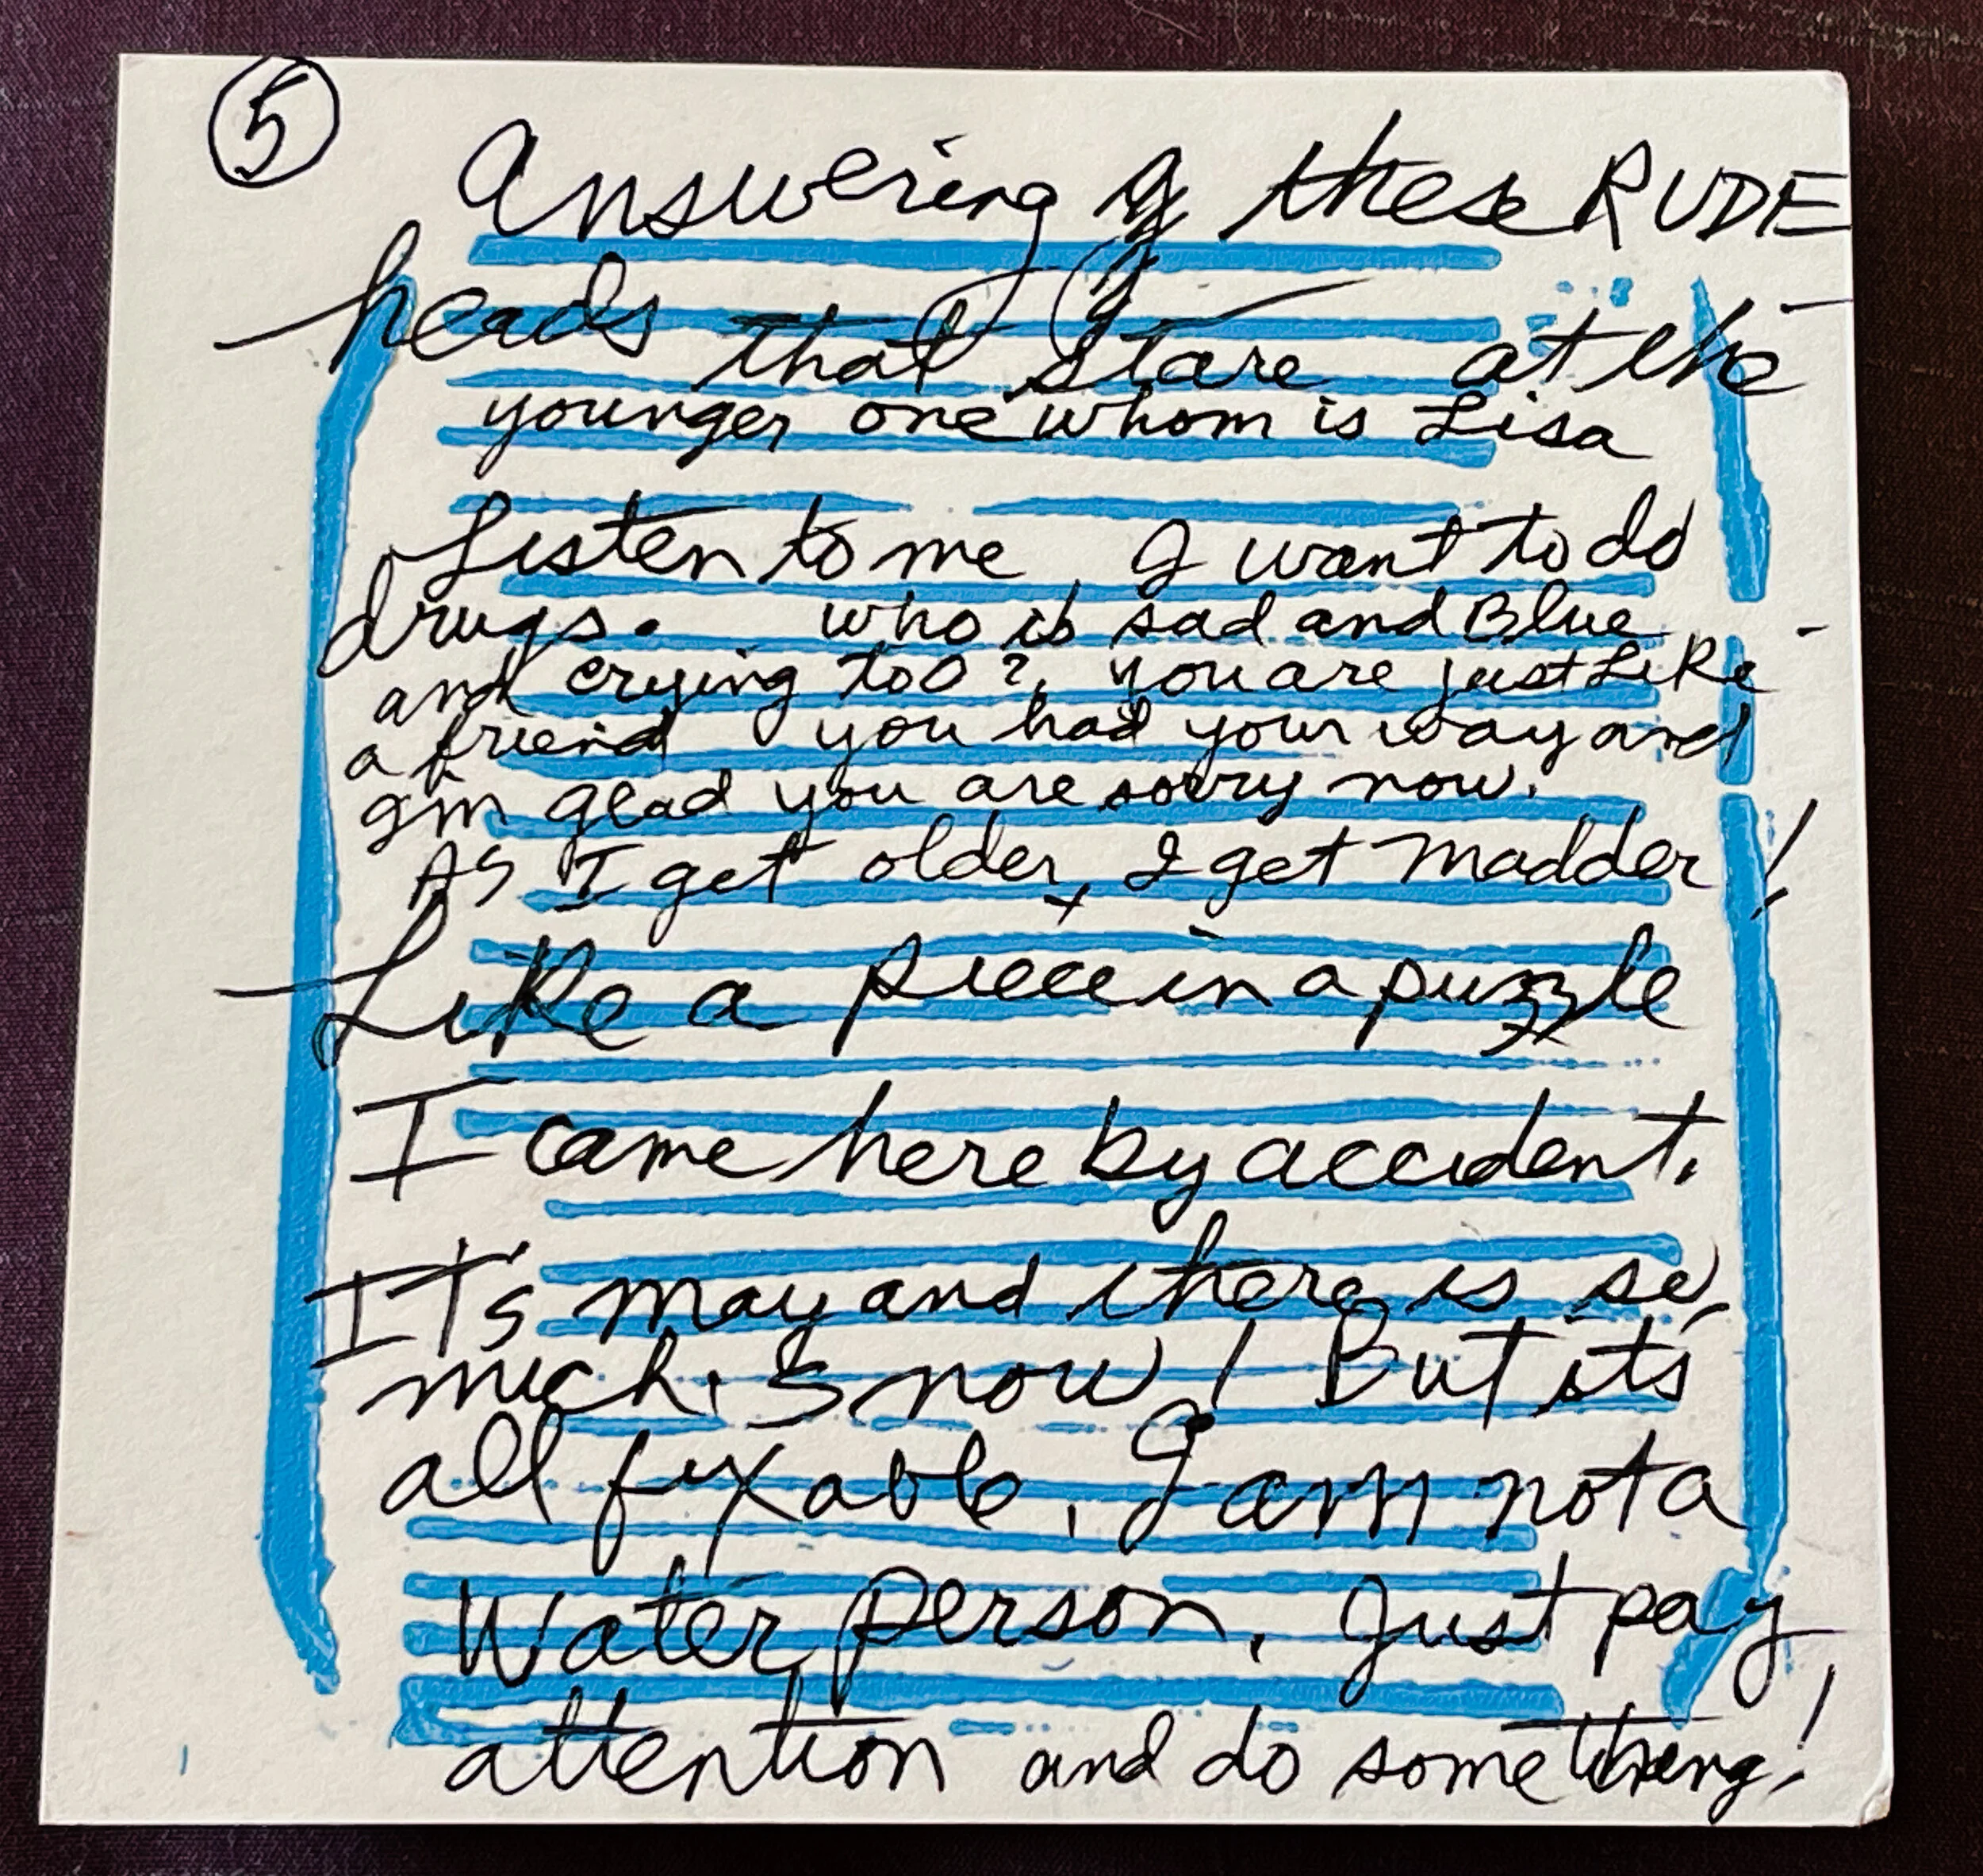 5
Answering of these RUDE
heads that stare at the
younger one whom is Lisa
Listen to me, I want to do
drugs. who is sad and Blue
and crying too? you are just Like
a friend you had your way and
I'm glad you are sorry now.
As I get older, I get madder!
Like a piece in a puzzle
I came here by accident.
IT's may and there is so
much. Snow! But its
all fixable. I am not a
Water person. Just pay
attention and do something!